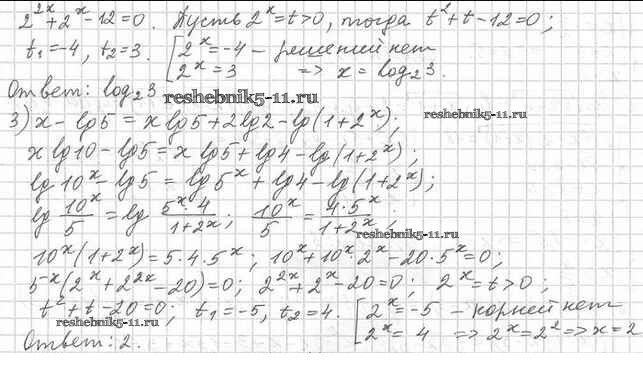 2^{2x}+2^x-12=0. Пусть 2^x=t>0, тогда t^2+t-12=0;
t_1=-4, t_2=3. [2^x=-4 - решений нет
2^x=3 => x=log_2 3.
Ответ: log_2 3.
reshebnik5-11.ru
3) x-lg5=xlg5+2lg2-lg(1+2^x);
reshebnik5-11.ru
xlg10-lg5=xlg5+lg4-lg(1+2^x);
lg10^x-lg5=lg5^x+lg4-lg(1+2^x);
lg 10^x/5 = lg 5^x·4/1+2^x; 10^x/5 = 4·5^x/1+2^x;
reshebnik5-11.ru
10^x(1+2^x)=5·4·5^x; 10^x+10^x·2^x-20·5^x=0;
5^{-x}(2^x+2^{2x}-20)=0; 2^{2x}+2^x-20=0; 2^x=t>0;
t^2+t-20=0; t_1=-5, t_2=4. [2^x=-5 - корней нет
reshebnik5-11.ru
2^x=4 => 2^x=2^2=>x=2
Ответ: 2.